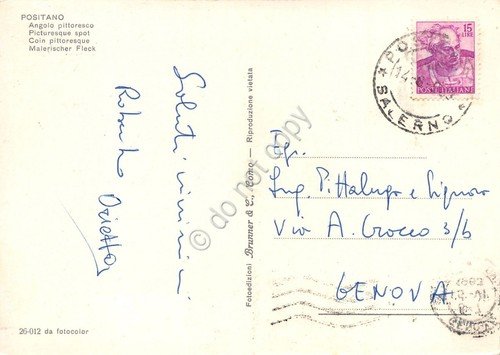 POSITANO
Angolo pittoresco
Picturesque spot
Coin pittoresque
Malerischer Fleck
Saluti vivissimi
Roberto Orietta
26-012 da fotocolor
Fotoedizioni Brunner & C., Como - Riproduzione vietata
do not copy
15
LIRE
POSTE ITALIANE
SALERNO
Ing. Pittaluga e Signora
Via A. Crocco 3/6
GENOVA